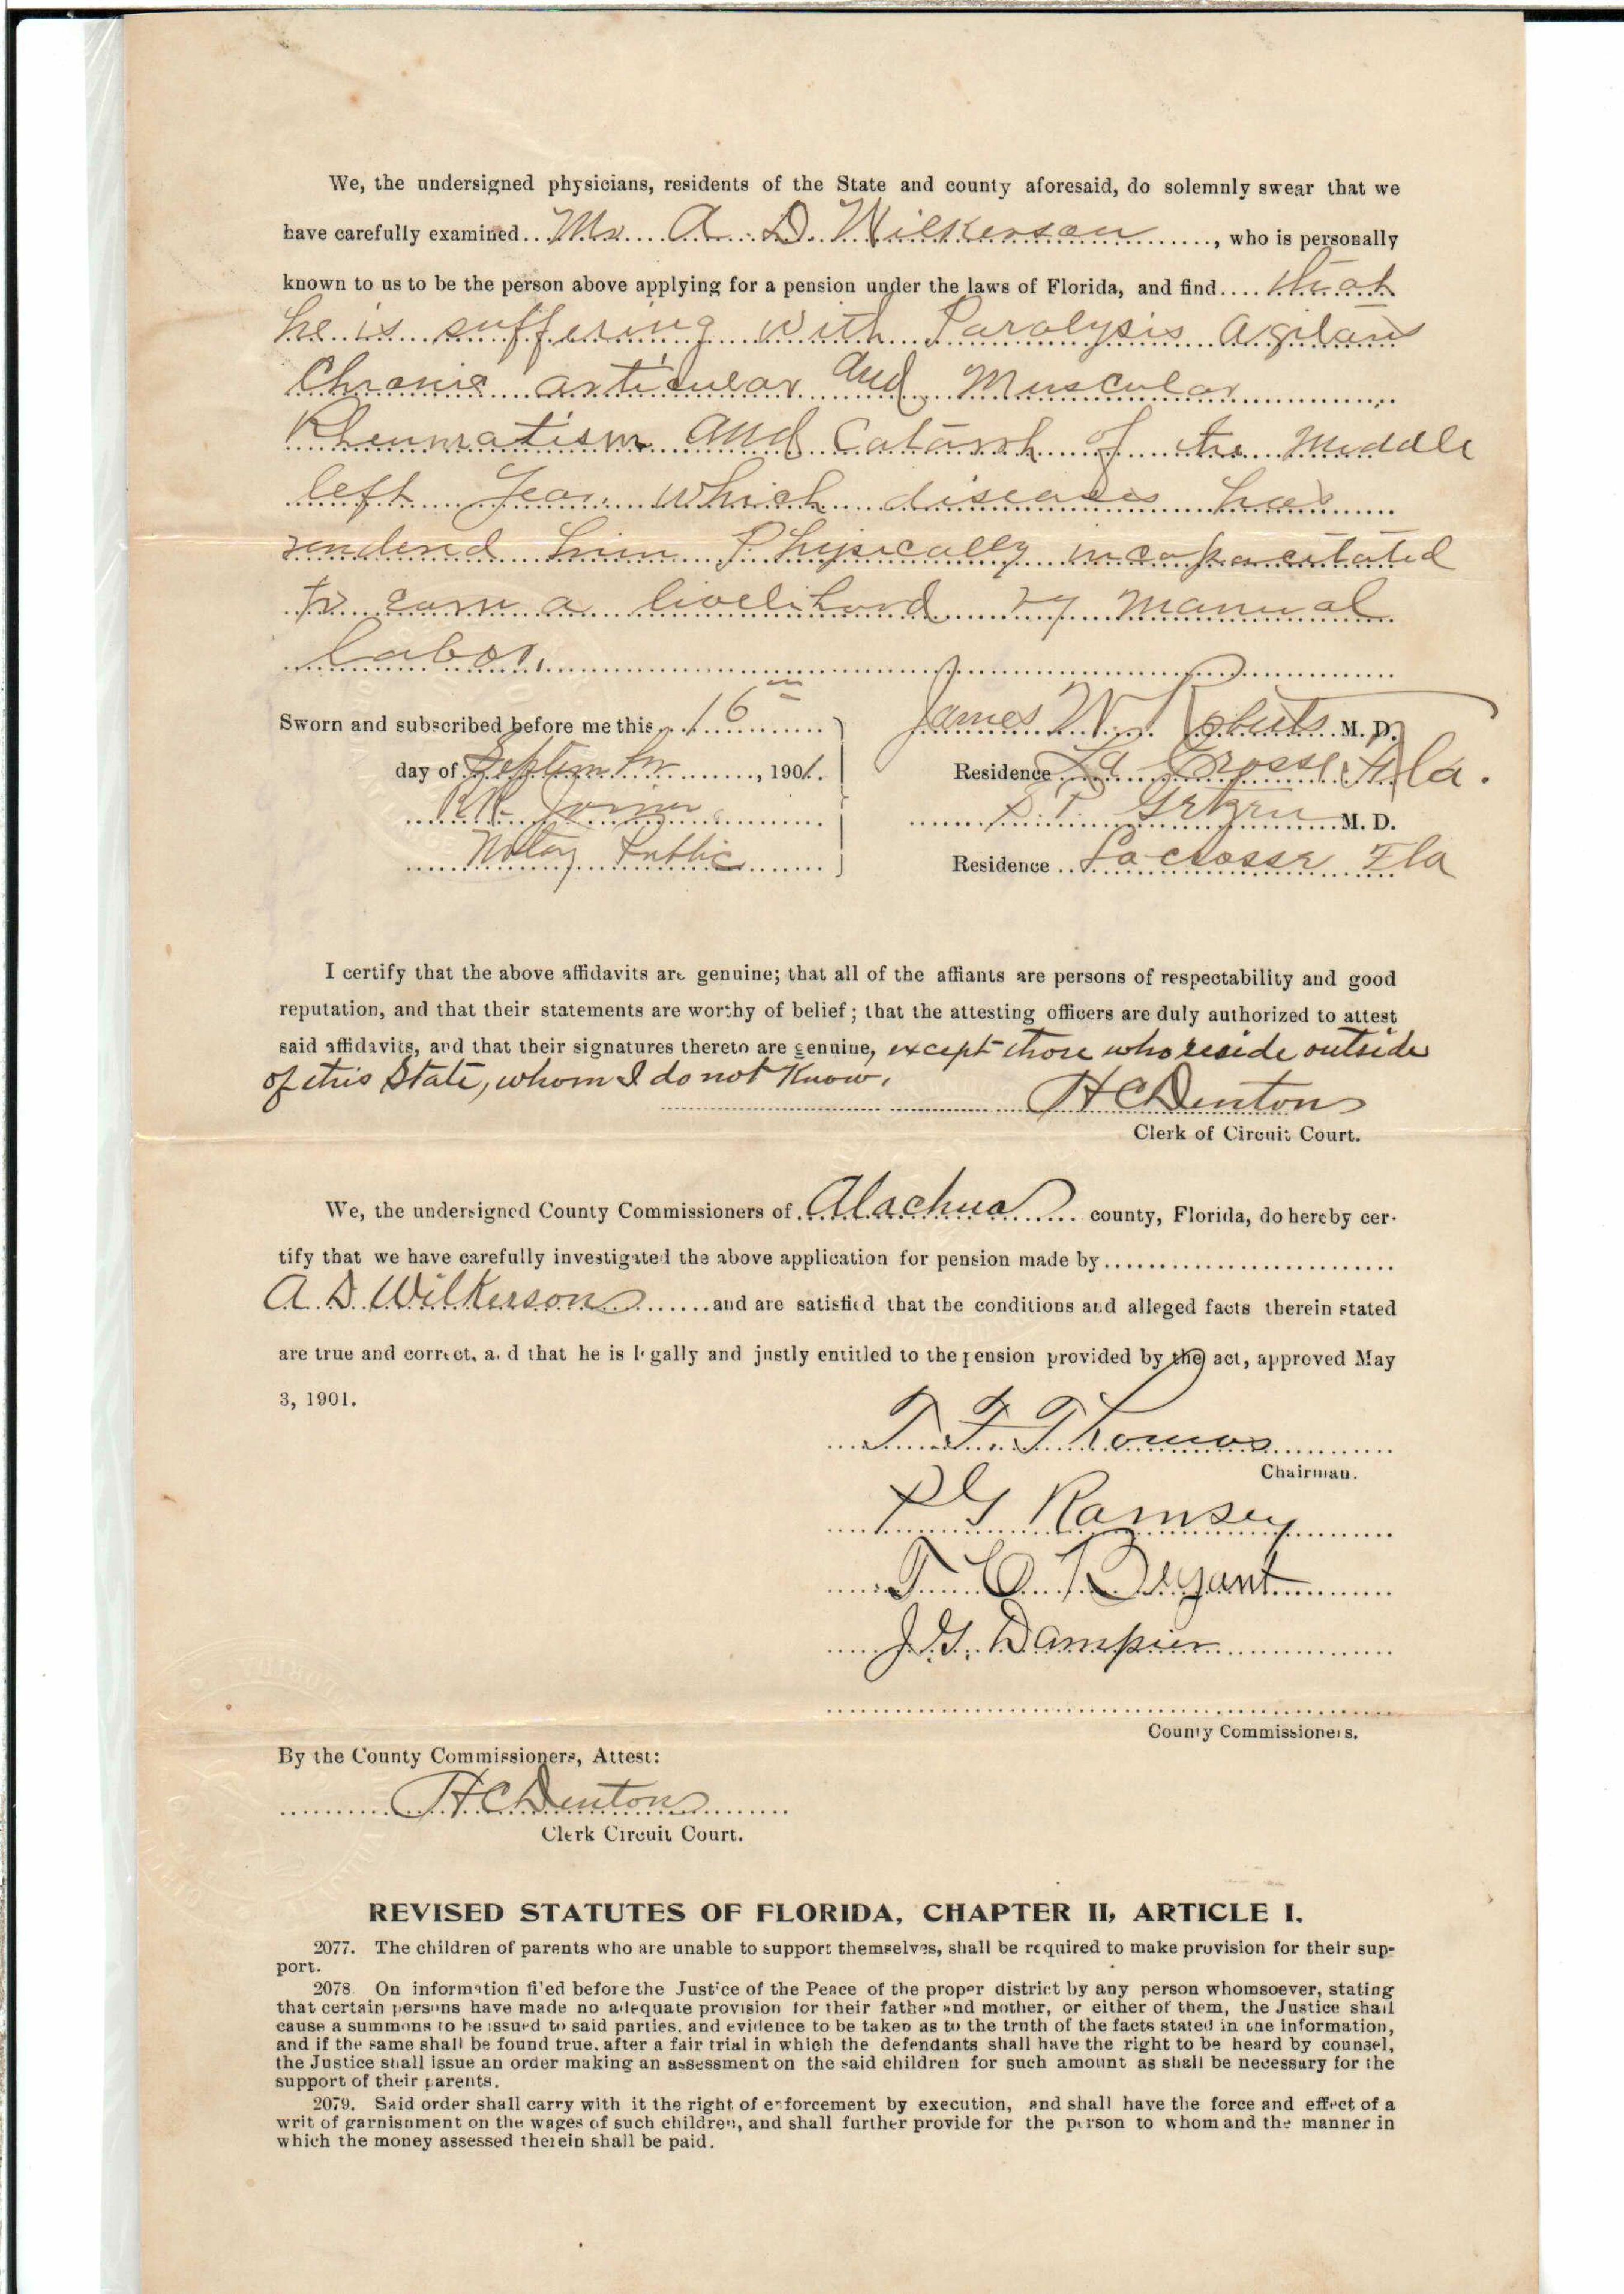 We, the undersigned physicians, residents of the State and county aforesaid, do solemnly swear that we
have carefully examined Mr. A. D. Wilkerson, who is personally
known to us to be the person above applying for a pension under the laws of Florida, and find that
he is suffering with Paralysis Agitans
Chronic articular and Muscular
Rheumatism and Catarrh of the Middle
left Year which diseases has
rendered him Physically incapacitated
to earn a livelihood by manual
labor.
Sworn and subscribed before me this 16
James W. Roberts M. D.
day of September, 1901.
Residence La Crosse Fla.
Notary Public
M. D.
Residence Lacrosse Fla
I certify that the above affidavits are genuine; that all of the affiants are persons of respectability and good
reputation, and that their statements are worthy of belief; that the attesting officers are duly authorized to attest
said affidavits, and that their signatures thereto are genuine, except those who reside outside
of this State, whom I do not Know.
H C Denton
Clerk of Circuit Court.
We, the undersigned County Commissioners of Alachua county, Florida, do hereby cer-
tify that we have carefully investigated the above application for pension made by
A. D. Wilkerson and are satisfied that the conditions and alleged facts therein stated
are true and correct, and that he is legally and justly entitled to the pension provided by the act, approved May
3, 1901.
T. F. Thomas
Chairman.
P G Ramsey
T. C. Bryant
J. G. Dampier
County Commissioners.
By the County Commissioners, Attest:
H C Denton
Clerk Circuit Court.
REVISED STATUTES OF FLORIDA, CHAPTER II, ARTICLE I.
2077. The children of parents who are unable to support themselves, shall be required to make provision for their sup-
port.
2078. On information filed before the Justice of the Peace of the proper district by any person whomsoever, stating
that certain persons have made no adequate provision for their father and mother, or either of them, the Justice shall
cause a summons to be issued to said parties, and evidence to be taken as to the truth of the facts stated in the information,
and if the same shall be found true, after a fair trial in which the defendants shall have the right to be heard by counsel,
the Justice shall issue an order making an assessment on the said children for such amount as shall be necessary for the
support of their parents.
2079. Said order shall carry with it the right of enforcement by execution, and shall have the force and effect of a
writ of garnishment on the wages of such children, and shall further provide for the person to whom and the manner in
which the money assessed therein shall be paid.